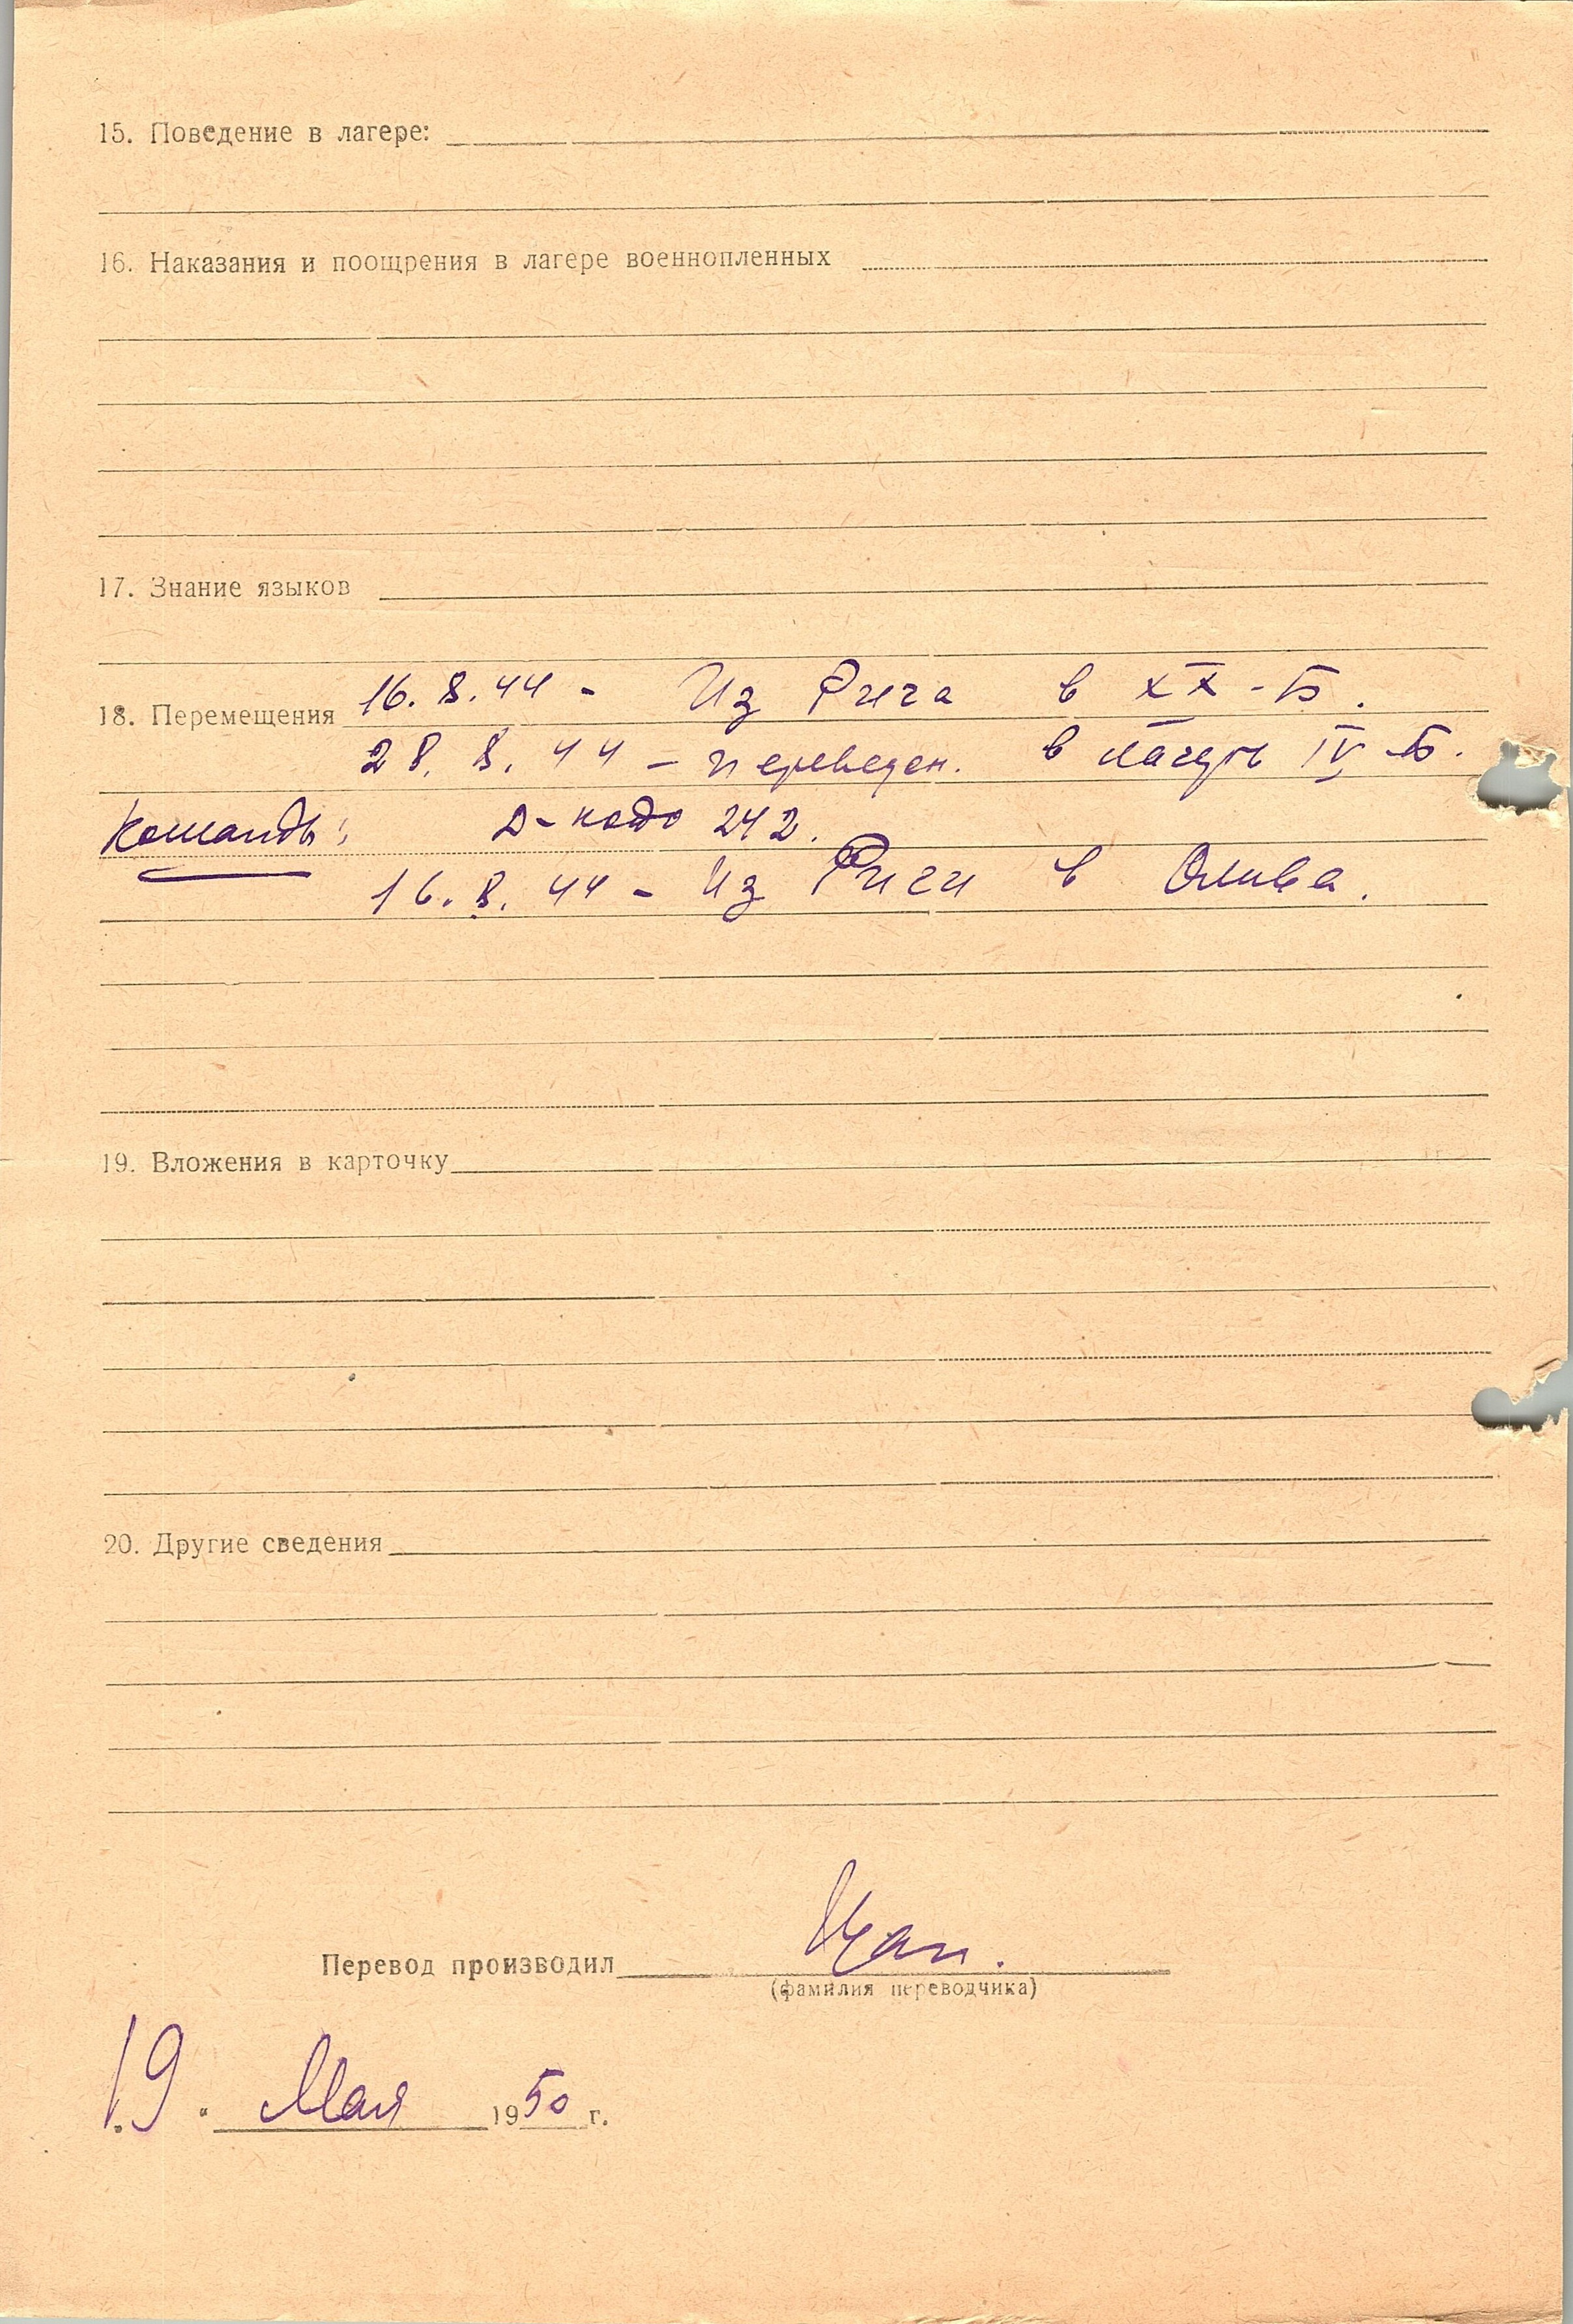 15. Поведение в лагере:
16. Наказания и поощрения в лагере военнопленных
17. Знание языков
16. 8. 44 - Из Рига в XX-Б.
18. Перемещения
28. 8. 44 - переведен. в лагерь IV-Б.
Команды: 242.
16. 8. 44 - Из Риги в Олива.
19. Вложения в карточку
20. Другие сведения
Перевод производил
(фамилия переводчика)
„19“ Мая 1950 г.